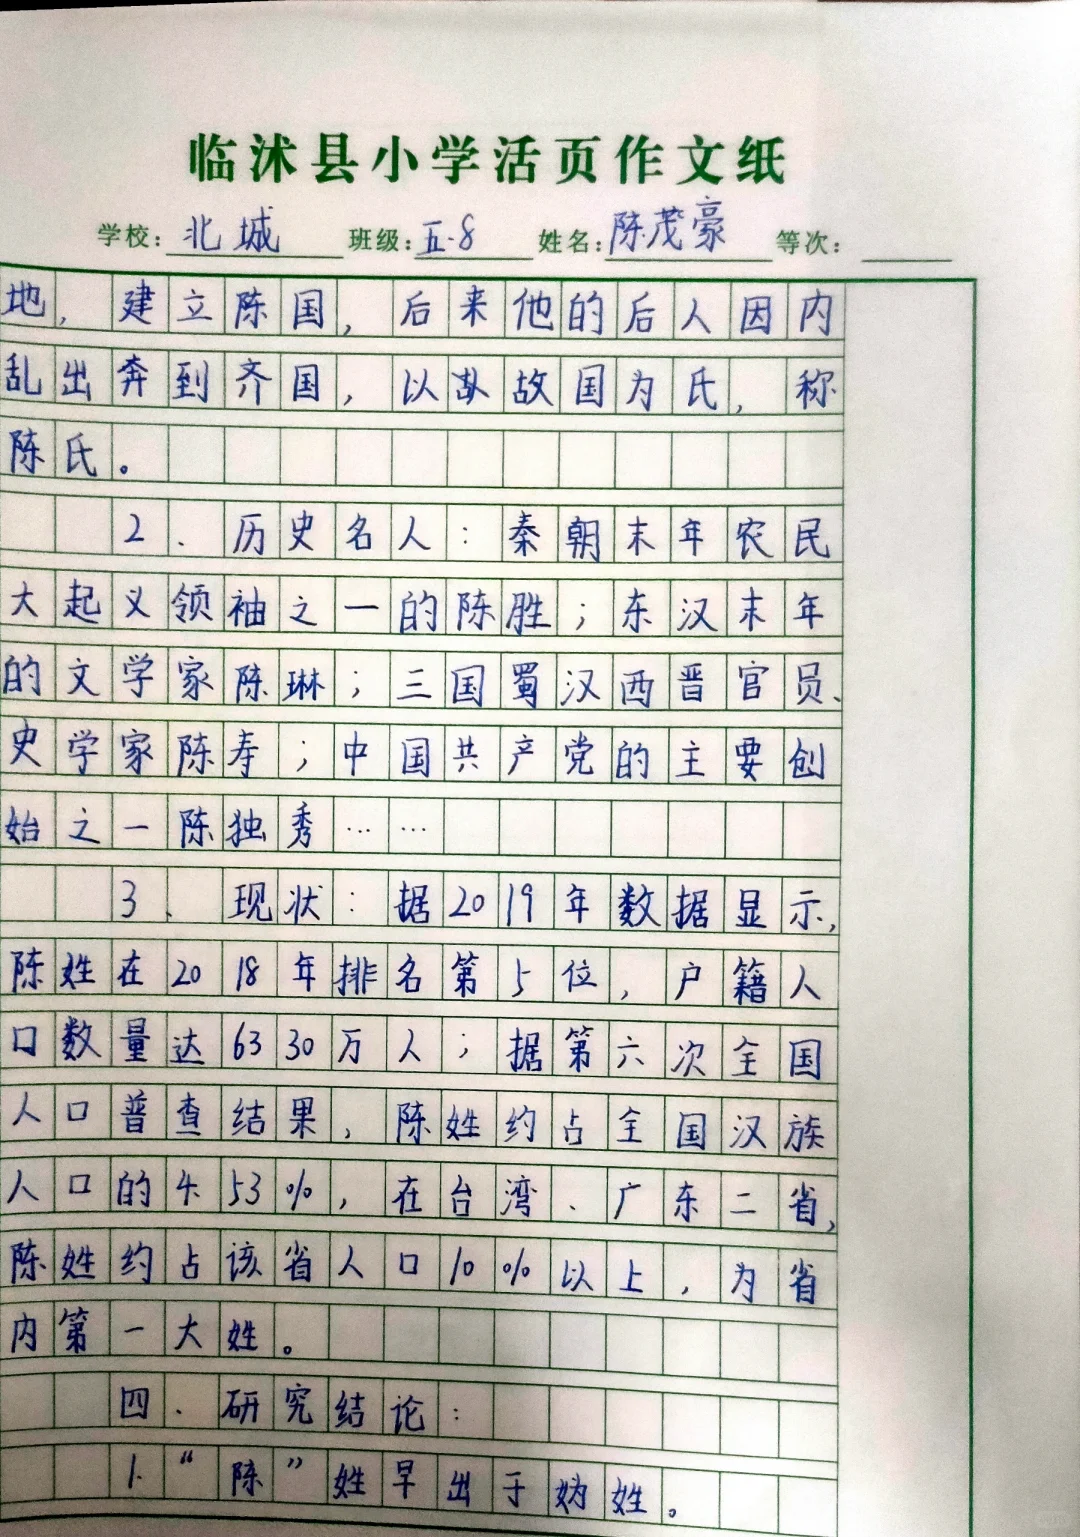 临沭县小学活页作文纸
学校：北城 班级：五·8 姓名：陈茂豪 等次：
地，建立陈国，后来他的后人因内
乱出奔到齐国，以故故国为氏，称
陈氏。
2、历史名人：秦朝末年农民
大起义领袖之一的陈胜；东汉末年
的文学家陈琳；三国蜀汉西晋官员、
史学家陈寿；中国共产党的主要创
始之一陈独秀……
3、现状：据2019年数据显示，
陈姓在2018年排名第5位，户籍人
口数量达6330万人；据第六次全国
人口普查结果，陈姓约占全国汉族
人口的4.53%，在台湾、广东二省，
陈姓约占该省人口10%以上，为省
内第一大姓。
四、研究结论：
1.“陈”姓早出于妫姓。